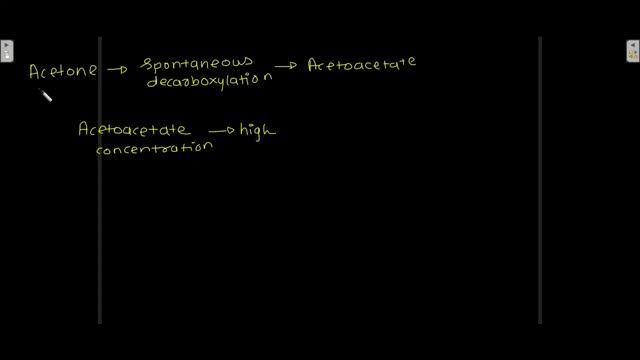 Acetone → spontaneous → Acetoacetate
decarboxylation
Acetoacetate → high
concentration